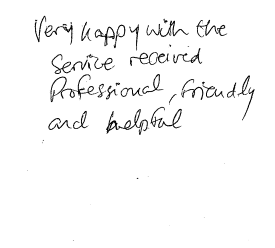 Very happy with the
service received
Professional, friendly
and helpful